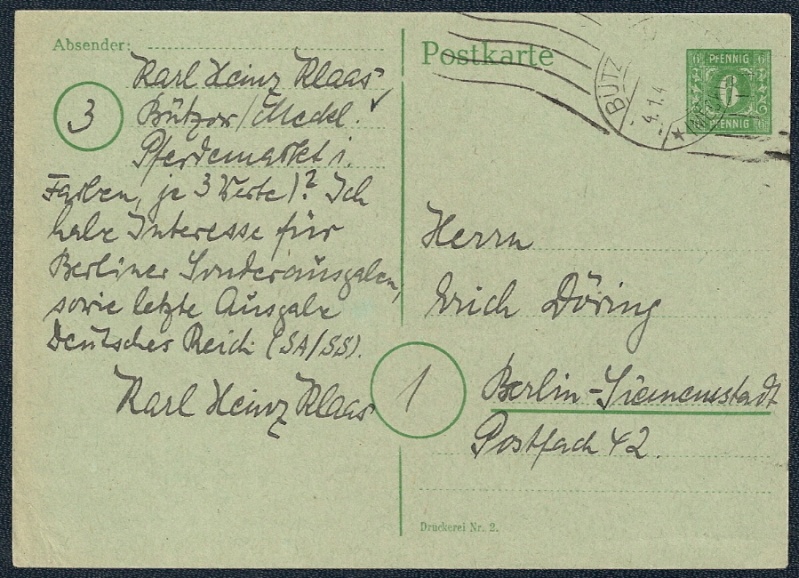 Absender:
Karl Heinz Klaas
3
Bützow/Meckl.
Pferdemarkt 1.
Farben, je 3 Werte)? Ich
habe Interesse für
Berliner Sonderausgaben,
sowie letzte Ausgabe
Deutsches Reich (SA/SS).
Karl Heinz Klaas
Postkarte
PFENNIG
6
PFENNIG
BÜTZ
4.1.4
Herrn
Erich Döring
1
Berlin-Siemensstadt
Postfach 42.
Druckerei Nr. 2.